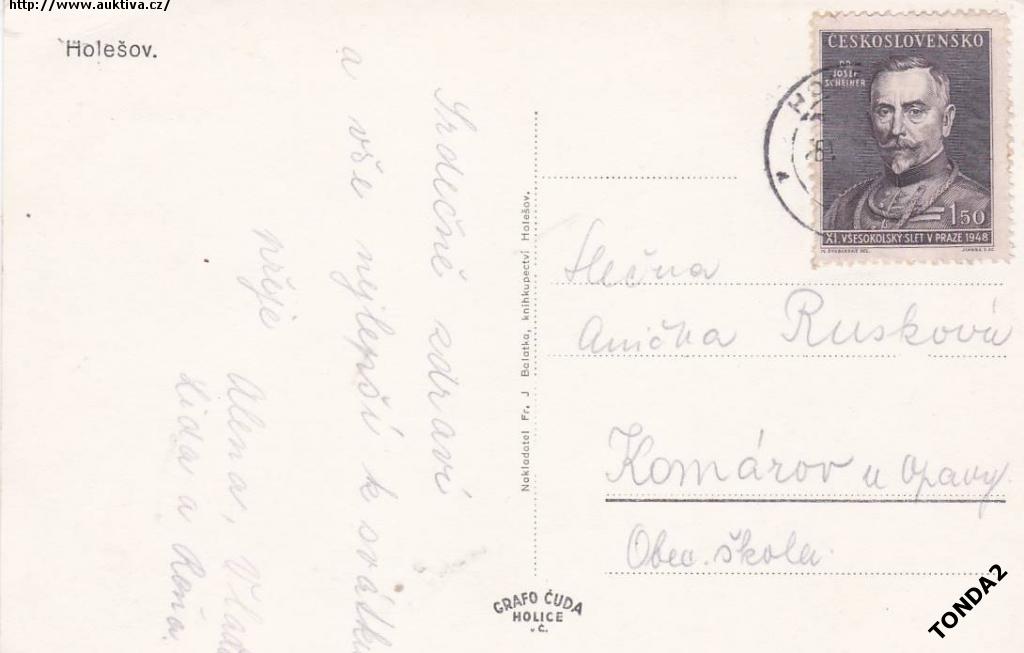 http://www.auktiva.cz/
Holešov.
Srdečně zdraví
a vše nejlepší k svátku
přeje
Alena, Vlaďa
Lida a Reňa.
Nakladatel Fr. J Balatka, knihkupectví Holešov.
GRAFO ČUDA
HOLICE
v Č.
ČESKOSLOVENSKO
DR
JOSEF
SCHEINER
1.50
XI. VŠESOKOLSKÝ SLET V PRAZE 1948
HO
Slečna
Anička Rusková
Komárov u Opavy.
Obec. škola.
TONDA2